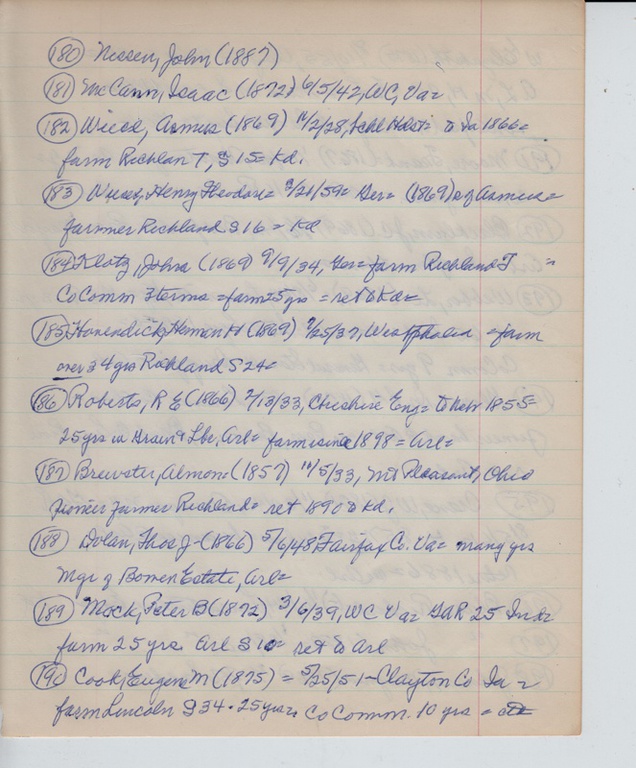 (180) Nissen, John (1887)
(181) McCann, Isaac (1872) 6/5/42, WC, Va=
(182) Wiese, Asmus (1869) 11/2/28, Schl Holst= to Ia 1866=
farm Richlan T, S 15= Kd.
(183) Henry Theodore= 3/21/59= Ger= (1869) s of Asmus=
farmer Richland S 16 = Kd
(184) Klotz, John (1869) 9/9/34, Ger= farm Richland T =
Co Comm 3 terms = farm 25 yrs = ret to Kd=
(185) Hovendick, Herman H (1869) 7/25/37, Westphalia = farm
over 34 yrs Richland S 24=
(186) Roberts, R E (1866) 2/13/33, Cheshire Eng= to Nebr 1855=
25 yrs in Grain & Lbr, Arl= farm since 1898 = Arl=
(187) Brewster, Almon= (1857) 11/5/33, Mt Pleasant, Ohio
Pioneer farmer Richland= ret 1890 to Kd.
(188) Dolan, Thos J- (1866) 5/6/48 Fairfax Co. Va= many yrs
Mgr of Bowen Estate, Arl=
(189) Mock, Peter B (1872) 3/6/39, WC Va= GAR 25 Ind=
farm 25 yrs. Arl S 10= ret to Arl
(190) Cook, Eugene M (1875) = 5/25/51- Clayton Co Ia =
farm Lincoln S 34 - 25 yrs= Co Comm. 10 yrs =